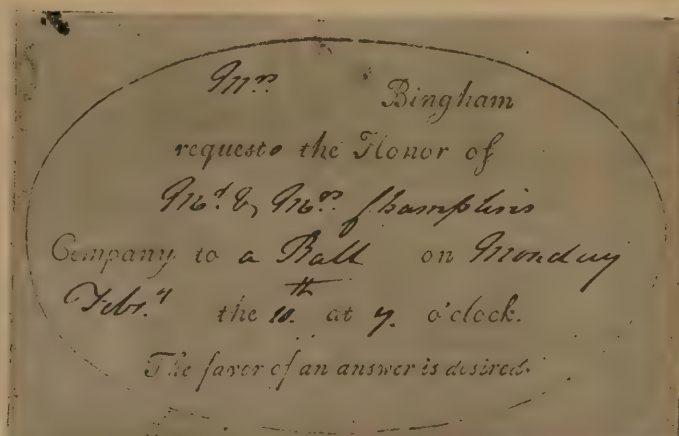 Mrs Bingham
requests the Honor of
Mr. & Mrs. Champlin's
Company to a Ball on Monday
Febr.y the 10.th at 7. o'clock.
The favor of an answer is desired.